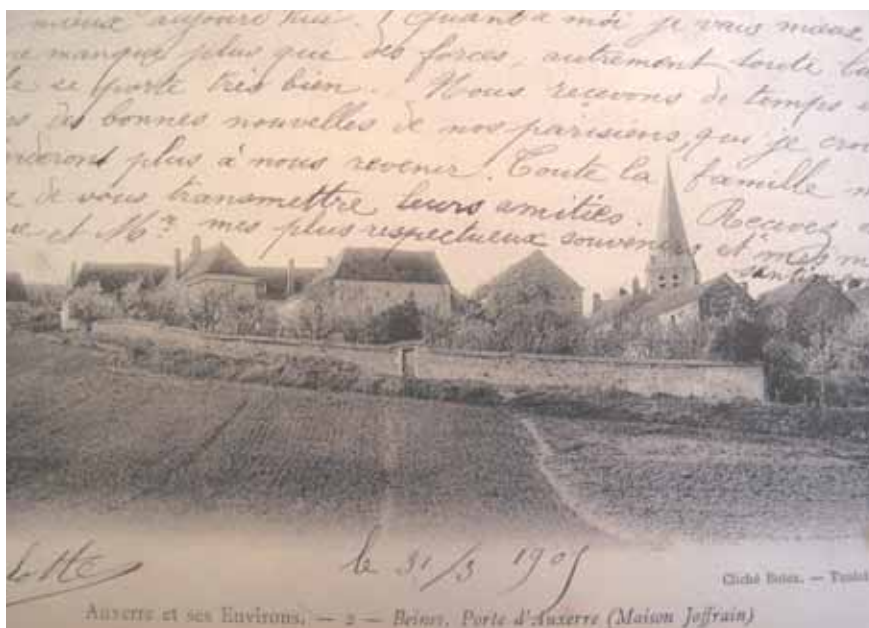 mieux aujourd'hui. Quant à moi je vais mieux
manque plus que des forces, autrement toute la
se porte très bien. Nous recevons de temps
des bonnes nouvelles de nos parisiens, qui je
plus à nous revenir. Toute la famille
de vous transmettre leurs amitiés. Recevez
et Mr mes plus respectueux souvenirs et mes
le 31/3 1905
Cliché
Auxerre et ses Environs. — 2 — Beines, Porte d'Auxerre (Maison Joffrain)